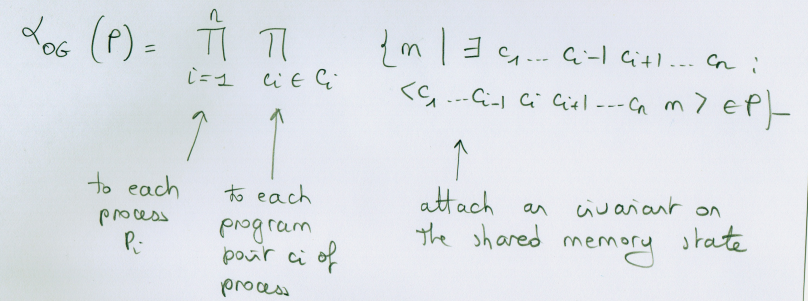 α_OG (P) = n∏i=1 ∏ci ∈ Ci { m | ∃ c1 ... ci-1 ci+1 ... cn :
<c1 ... ci-1 ci ci+1 ... cn m> ∈ P }
to each
process
Pi
to each
program
point ci of
process
attach an invariant on
the shared memory state